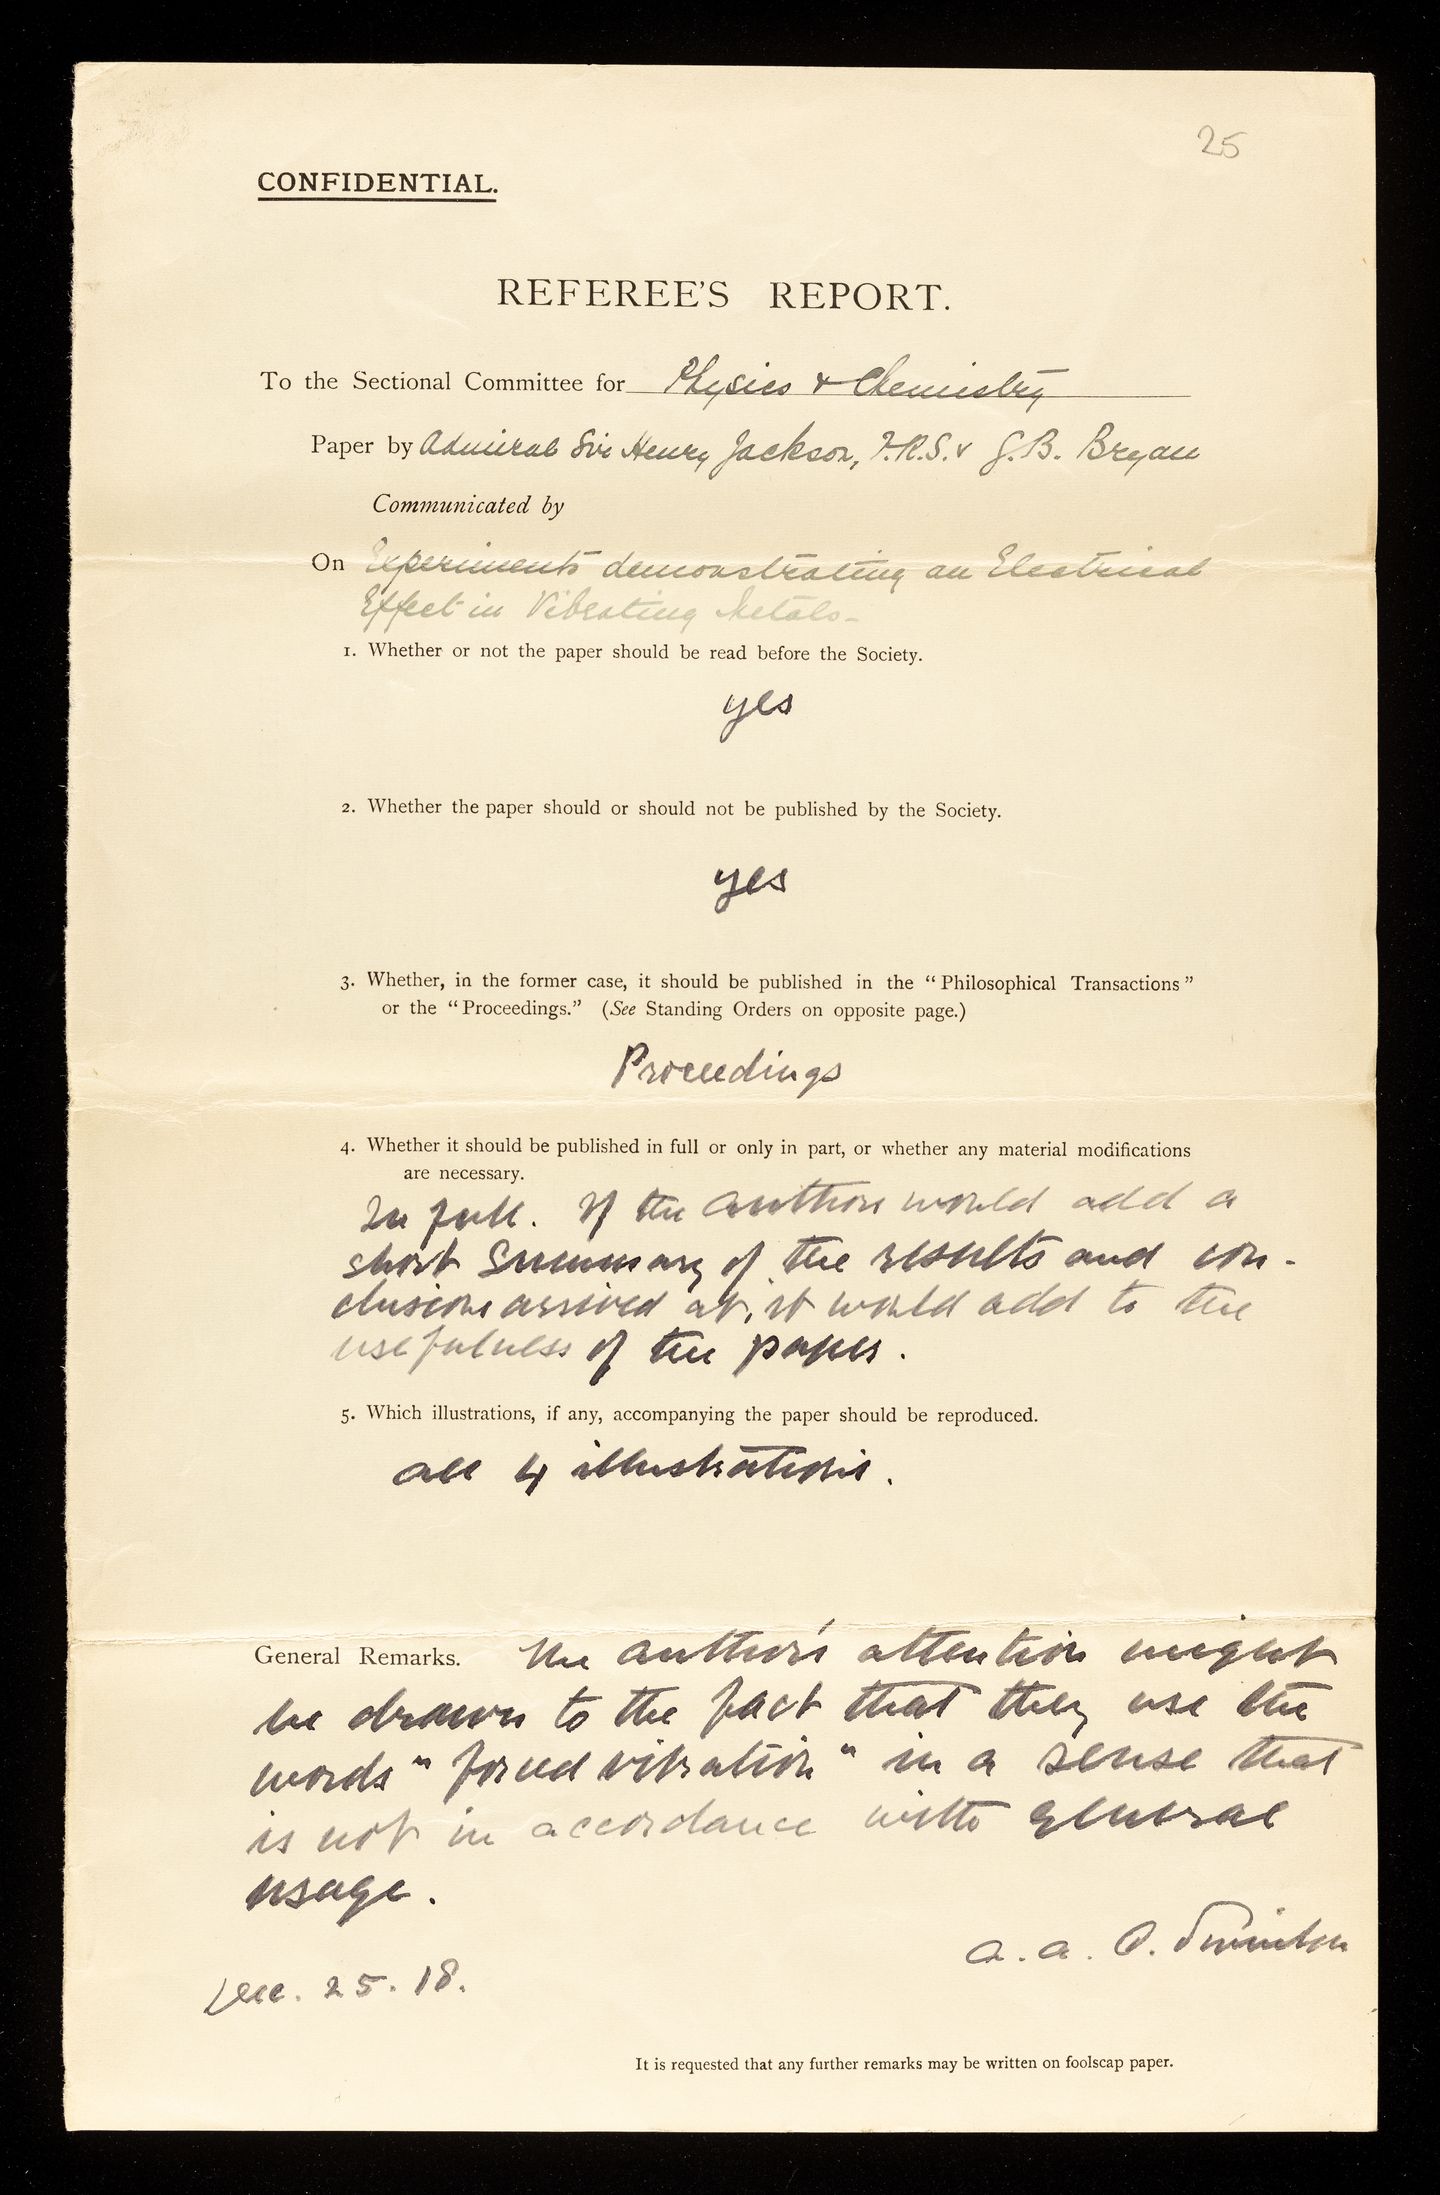 25
CONFIDENTIAL.
REFEREE'S REPORT.
To the Sectional Committee for Physics & Chemistry
Paper by Admiral Sir Henry Jackson, F.R.S. & G.B. Bryan
Communicated by
On Experiments demonstrating an Electrical
Effect in Vibrating Metals.
1. Whether or not the paper should be read before the Society.
yes
2. Whether the paper should or should not be published by the Society.
yes
3. Whether, in the former case, it should be published in the "Philosophical Transactions"
or the "Proceedings." (See Standing Orders on opposite page.)
Proceedings
4. Whether it should be published in full or only in part, or whether any material modifications
are necessary.
In full. If the authors would add a
short summary of the results and con-
clusions arrived at, it would add to the
usefulness of the paper.
5. Which illustrations, if any, accompanying the paper should be reproduced.
all 4 illustrations.
General Remarks. The author's attention might
be drawn to the fact that they use the
words "forced vibration" in a sense that
is not in accordance with general
usage.
A. A. C. Swinton
Dec. 25. 18.
It is requested that any further remarks may be written on foolscap paper.